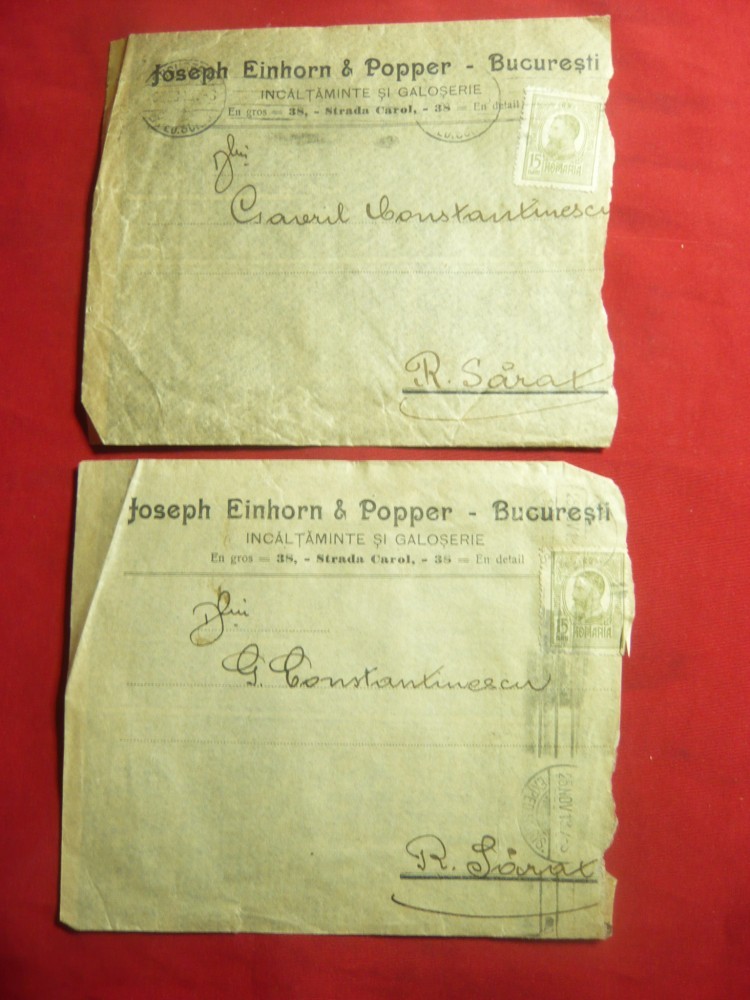 Joseph Einhorn & Popper - București
INCĂLȚĂMINTE ȘI GALOȘERIE
En gros = 38, - Strada Carol, - 38 = En detail
15
ROMANIA
Dlui
Gavril Constantinescu
R. Sărat
Joseph Einhorn & Popper - București
INCĂLȚĂMINTE ȘI GALOȘERIE
En gros = 38, - Strada Carol, - 38 = En detail
15
ROMANIA
Dlui
G. Constantinescu
NOV
R. Sărat